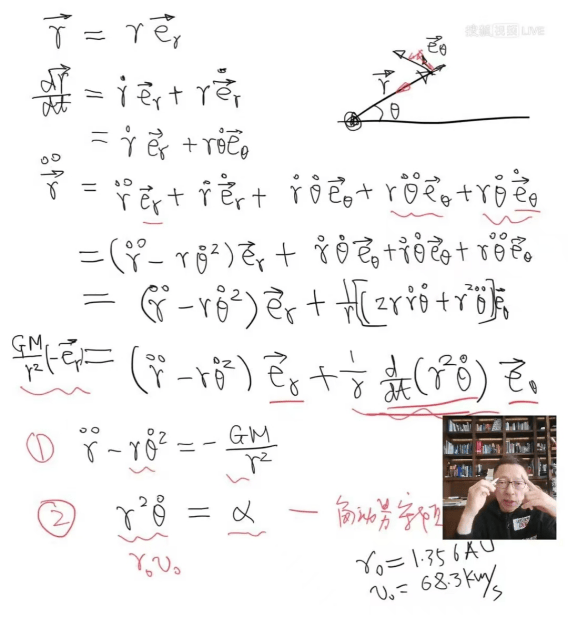 搜狐视频LIVE
$\vec{r} = r\vec{e}_r$
$\vec{e}_\theta$
$\vec{r}$
θ
$\frac{d\vec{r}}{dt} = \dot{r}\vec{e}_r + r\dot{\vec{e}}_r$
$= \dot{r}\vec{e}_r + r\dot{\theta}\vec{e}_\theta$
$\ddot{\vec{r}} = \ddot{r}\vec{e}_r + \dot{r}\dot{\vec{e}}_r + \dot{r}\dot{\theta}\vec{e}_\theta + r\ddot{\theta}\vec{e}_\theta + r\dot{\theta}\dot{\vec{e}}_\theta$
$= (\ddot{r} - r\dot{\theta}^2)\vec{e}_r + \dot{r}\dot{\theta}\vec{e}_\theta + \dot{r}\dot{\theta}\vec{e}_\theta + r\ddot{\theta}\vec{e}_\theta$
$= (\ddot{r} - r\dot{\theta}^2)\vec{e}_r + \frac{1}{r}[2r\dot{r}\dot{\theta} + r^2\ddot{\theta}]\vec{e}_\theta$
$\frac{GM}{r^2}(-\vec{e}_r) = (\ddot{r} - r\dot{\theta}^2)\vec{e}_r + \frac{1}{r}\frac{d}{dt}(r^2\dot{\theta})\vec{e}_\theta$
① $\ddot{r} - r\dot{\theta}^2 = -\frac{GM}{r^2}$
② $r^2\dot{\theta} = \alpha$ — 角动量守恒
$r_0 v_0$
$r_0 = 1.356 AU$
$v_0 = 68.3 km/s$